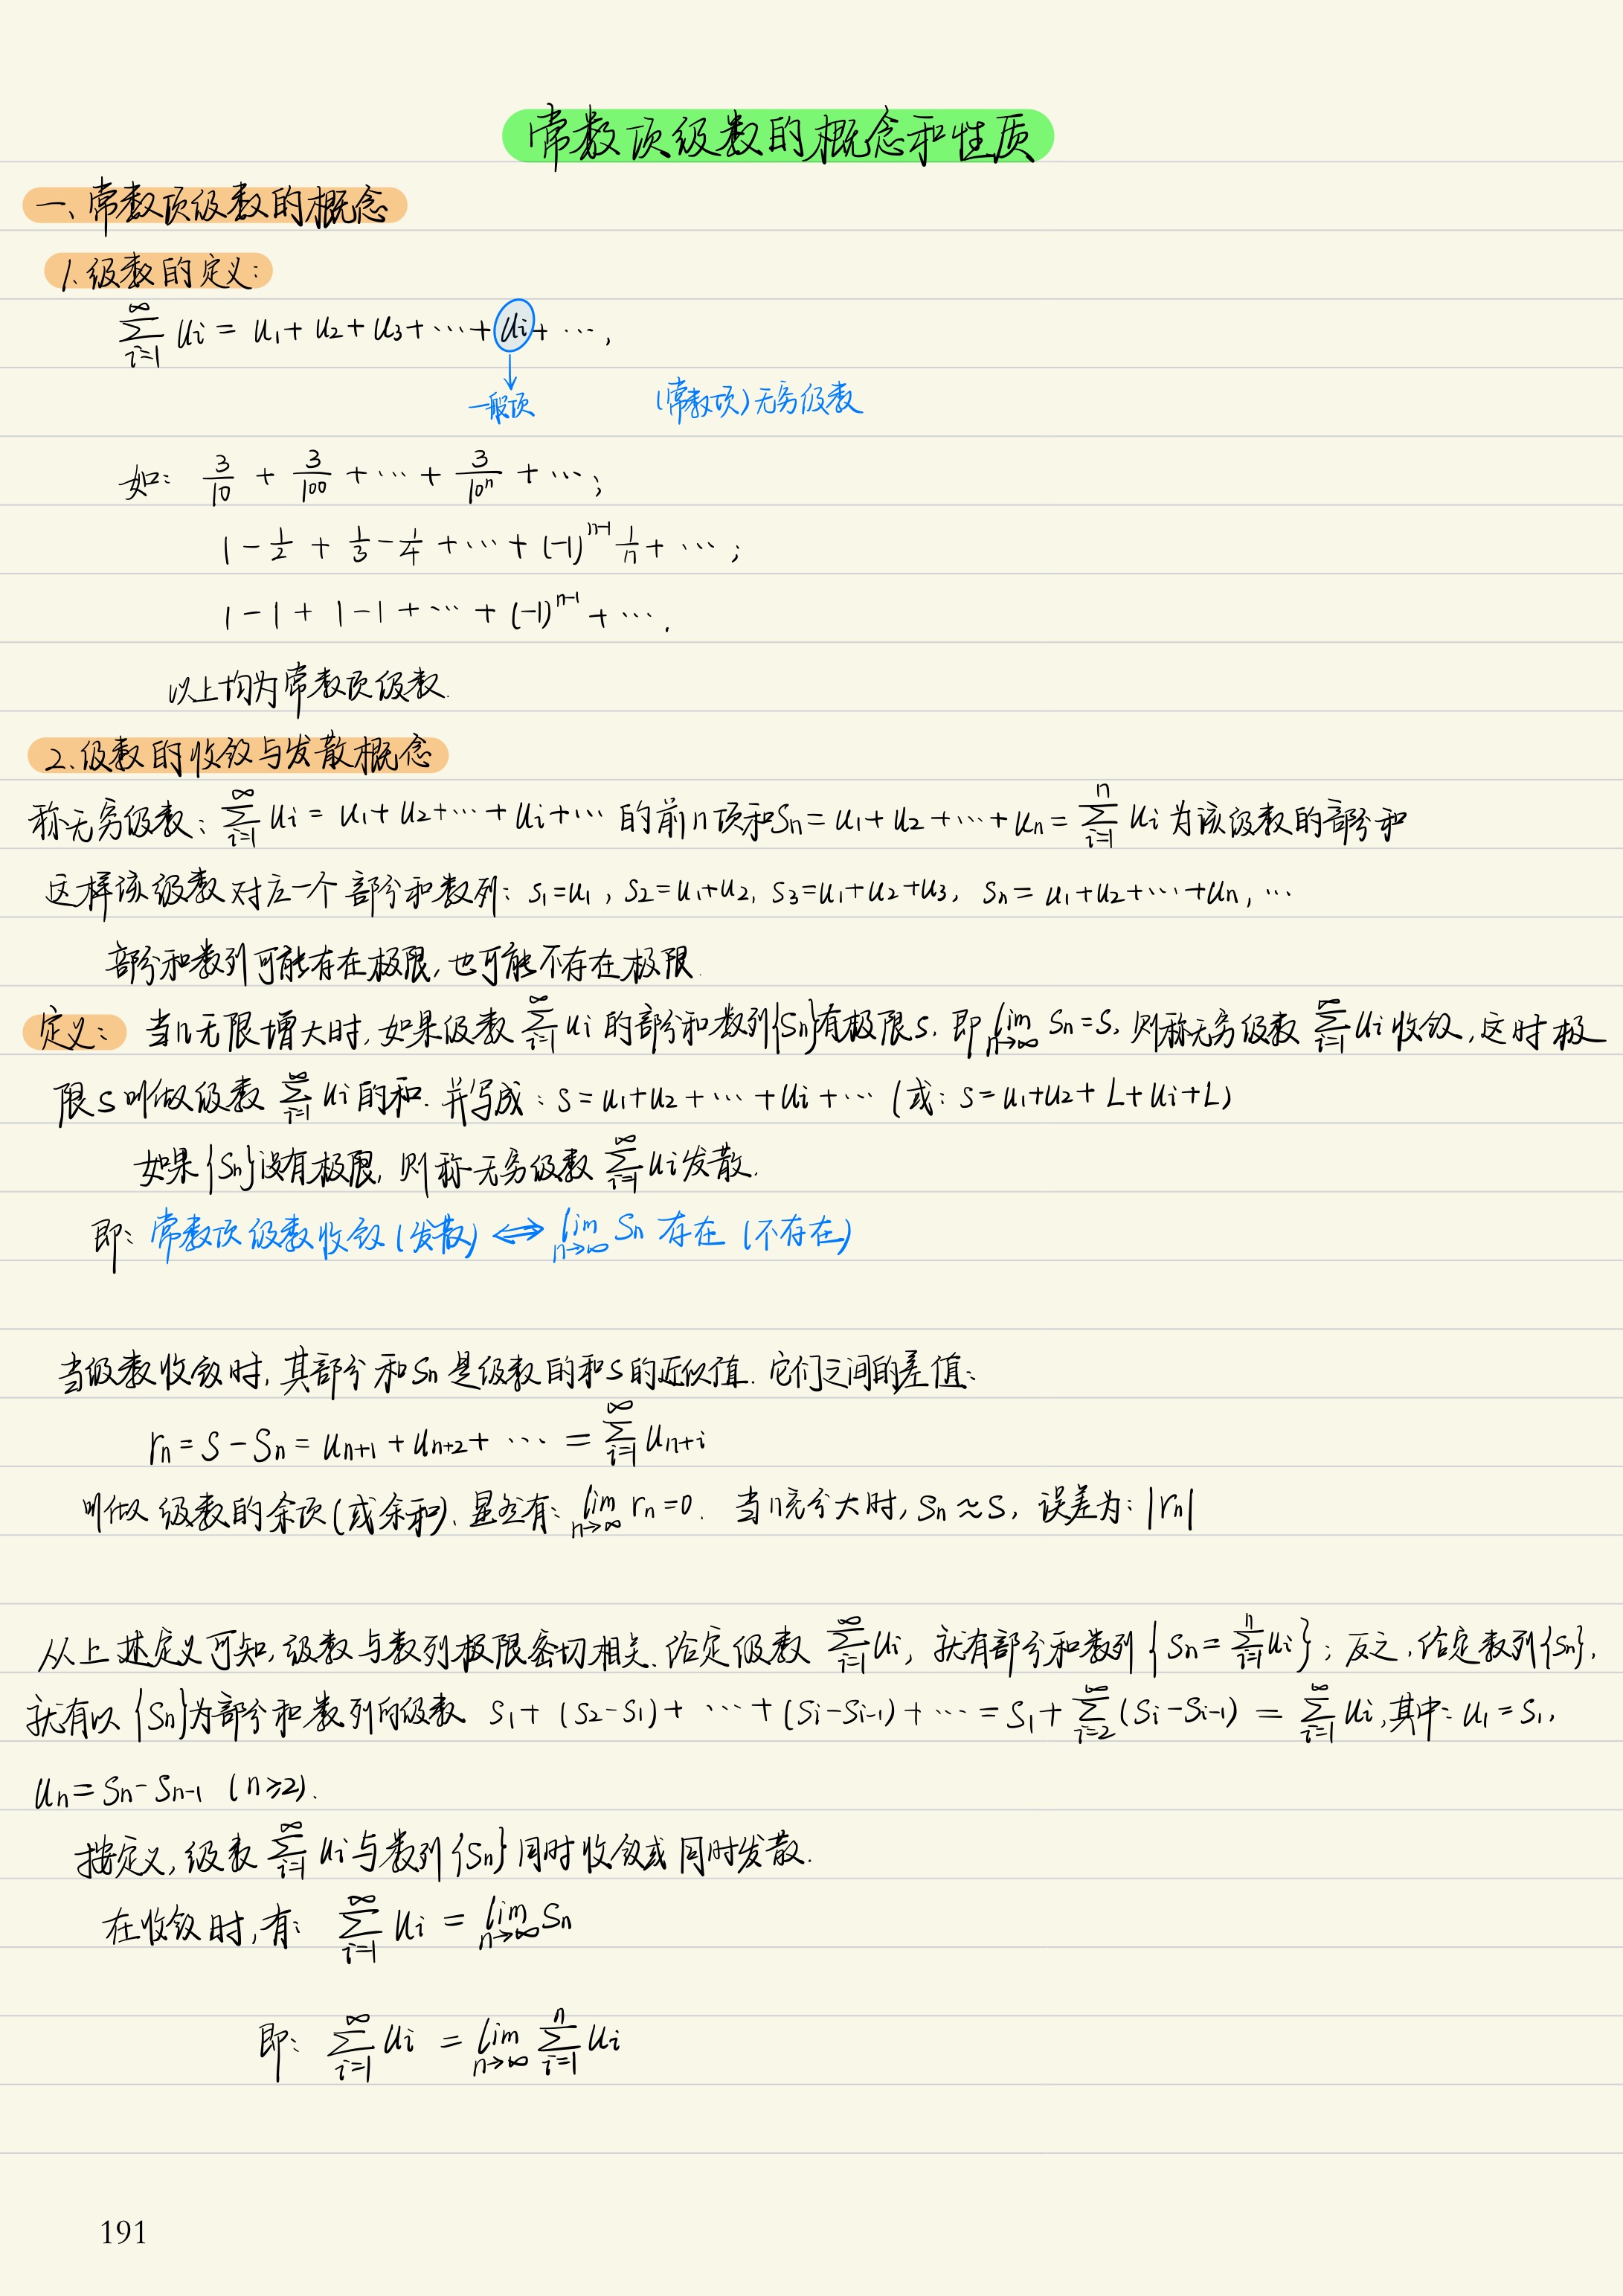 常数项级数的概念和性质
一、常数项级数的概念
1.级数的定义:
$\sum_{i=1}^{\infty} u_i = u_1+u_2+u_3+\cdots+u_i+\cdots,$
一般项 (常数项)无穷级数
如: $\frac{3}{10}+\frac{3}{100}+\cdots+\frac{3}{10^n}+\cdots;$
$1-\frac{1}{2}+\frac{1}{3}-\frac{1}{4}+\cdots+(-1)^{n-1}\frac{1}{n}+\cdots;$
$1-1+1-1+\cdots+(-1)^{n-1}+\cdots.$
以上均为常数项级数.
2.级数的收敛与发散概念
称无穷级数: $\sum_{i=1}^{\infty} u_i = u_1+u_2+\cdots+u_i+\cdots$ 的前n项和$S_n=u_1+u_2+\cdots+u_n=\sum_{i=1}^{n} u_i$ 为该级数的部分和
这样该级数对应一个部分和数列: $s_1=u_1, s_2=u_1+u_2, s_3=u_1+u_2+u_3, s_n=u_1+u_2+\cdots+u_n, \cdots$
部分和数列可能存在极限,也可能不存在极限.
定义: 当n无限增大时,如果级数 $\sum_{i=1}^{\infty} u_i$ 的部分和数列$\{S_n\}$有极限s. 即 $\lim_{n\to\infty} S_n=S$, 则称无穷级数 $\sum_{i=1}^{\infty} u_i$ 收敛,这时极
限s叫做级数 $\sum_{i=1}^{\infty} u_i$ 的和. 并写成: $s=u_1+u_2+\cdots+u_i+\cdots$ (或: $s=u_1+u_2+L+u_i+L$)
如果$\{S_n\}$没有极限, 则称无穷级数 $\sum_{i=1}^{\infty} u_i$ 发散.
即: 常数项级数收敛(发散) $\Leftrightarrow \lim_{n\to\infty} S_n$ 存在 (不存在)
当级数收敛时,其部分和$S_n$是级数的和S的近似值. 它们之间的差值:
$r_n=S-S_n=u_{n+1}+u_{n+2}+\cdots=\sum_{i=1}^{\infty} u_{n+i}$
叫做级数的余项(或余和). 显然有: $\lim_{n\to\infty} r_n=0$. 当n充分大时, $S_n\approx S$, 误差为: $|r_n|$
从上述定义可知,级数与数列极限密切相关. 给定级数 $\sum_{i=1}^{\infty} u_i$, 就有部分和数列 $\{S_n=\sum_{i=1}^{n} u_i\}$; 反之,给定数列$\{S_n\}$,
就有以$\{S_n\}$为部分和数列的级数 $s_1+(s_2-s_1)+\cdots+(s_i-s_{i-1})+\cdots=s_1+\sum_{i=2}^{\infty}(s_i-s_{i-1})=\sum_{i=1}^{\infty} u_i$,其中: $u_1=s_1$,
$u_n=s_n-s_{n-1}$ $(n\geq 2)$.
按定义,级数 $\sum_{i=1}^{\infty} u_i$ 与数列$\{S_n\}$同时收敛或同时发散.
在收敛时,有: $\sum_{i=1}^{\infty} u_i=\lim_{n\to\infty} S_n$
即: $\sum_{i=1}^{\infty} u_i=\lim_{n\to\infty}\sum_{i=1}^{n} u_i$
191